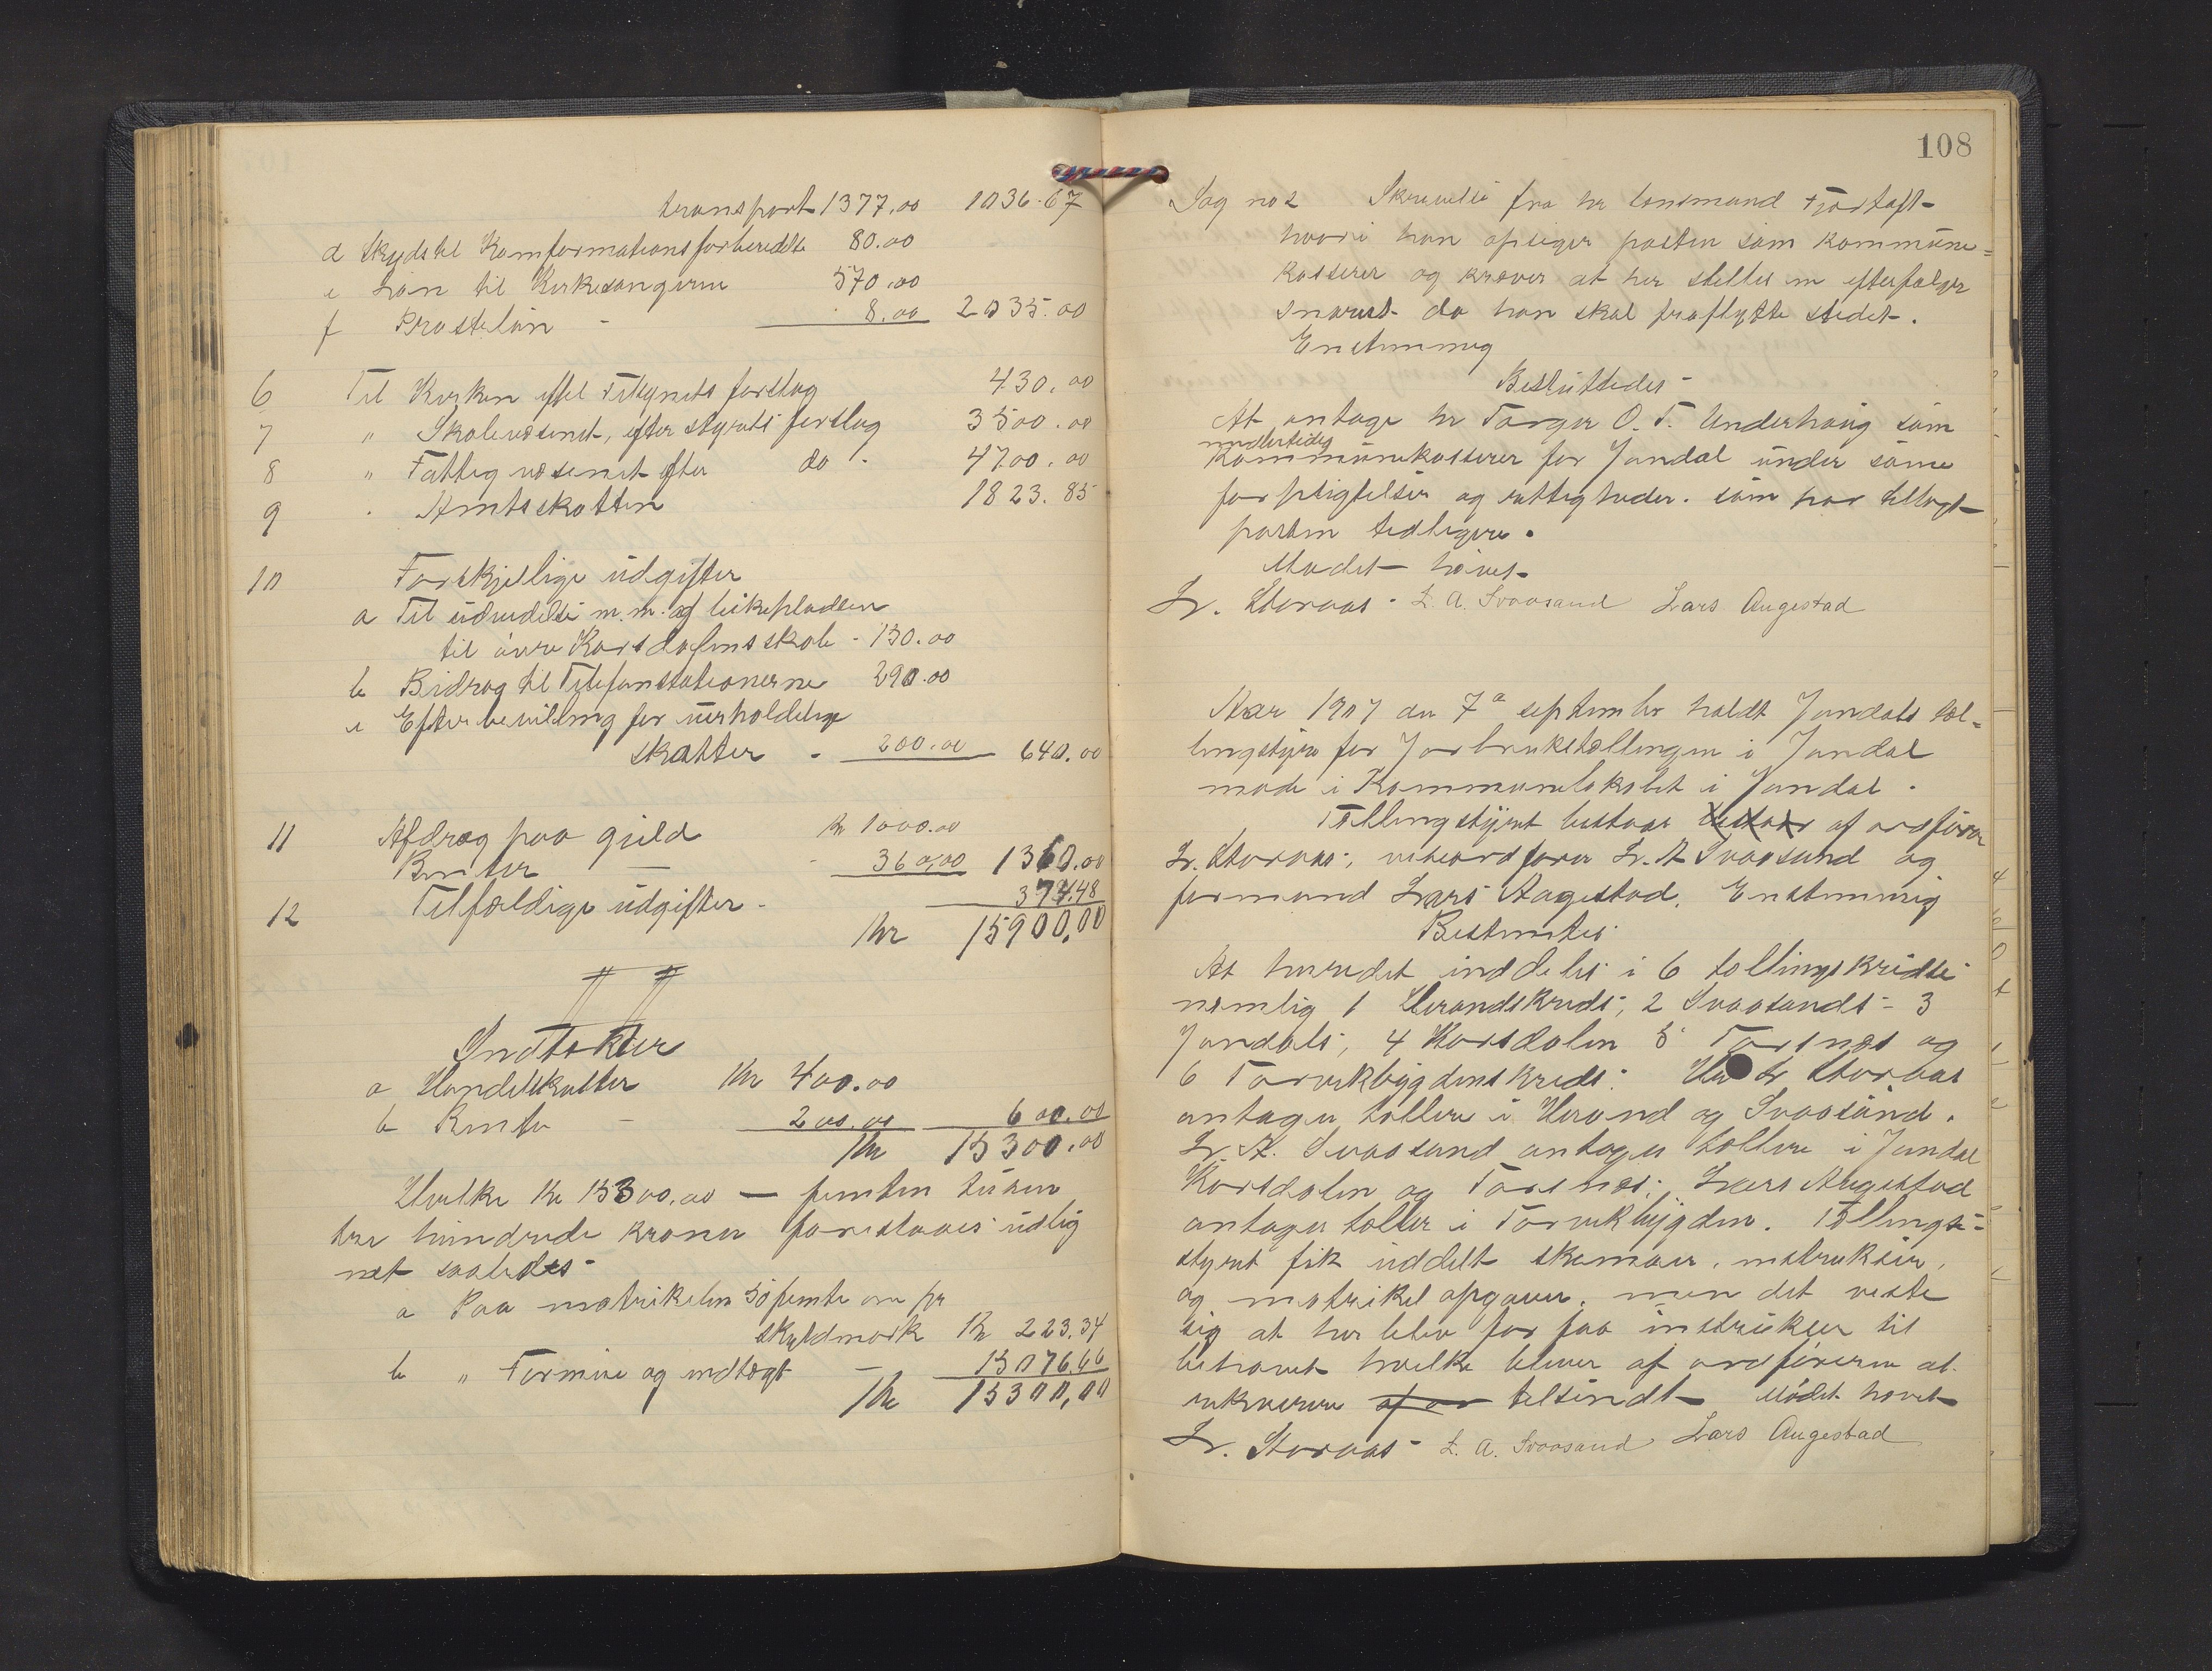 transport 1377,00 1036.67
d Skyds til Komformationsforberedelse 80.00
e Løn til Kirkesangerne 570,00
f Prosteløn - 8,00 2035.00
6 Til Kirken eftel Tilsynets forslag 430,00
7 " Skolevæsenet, efter styrets forslag 3500.00
8 " Fattigvæsenet efter do - 4700,00
9 - Amtsskatten 1823.85
10 Forskjellige udgifter
a Til udvidelse m.m. af leikepladsen
til øvre Korsdalens skole - 150.00
b Bidrag til Telefonstationerne 290.00
c Efterbevilling for uerholdelige
skatter - 200.00 640.00
11 Afdrag paa gjeld Kr 1000.00
Renter - 360,00 1360.00
12 Tilfældige udgifter - 374.48
Kr 15900,00
II
Indtækter
a Handelskatter Kr 400.00
b Renter - 200.00 600.00
Kr 15300.00
Hvilke Kr 15300,00 — femten tusen
tre hundrede kroner foreslaaes udlig
net saaledes -
a Paa matrikelen 50 femti øre pr
skyldmark Kr 223.34
b " Formue og indtægt - 15076.66
Kr 15300,00
108
Sag no 2 Skrivelse fra hr lensmand Fjørtoft
hvori han opsiger posten som kommune-
kasserer og kræver at her stilles en efterfølger
snarest da han skal fraflytte stedet.
Enstemmig
Besluttedes -
At antage hr Torger O. T. Underhaug som
midlertidig
Kommunekasserer for Jondal under samme
forpligtelser og rettigheder. som har tillagt
posten tidligere.
Mødet hævet
Lr. Storaas - L. A. Svaasand Lars Augestad
Aar 1907 den 7de september holdt Jondals tæl-
lingstyre for Jorbrukstællingen i Jondal
møde i Kommunelokalet i Jondal.
Tællingstyret bestaar bestaar af ordfører
Lr. Storaas, viseordfører L. A Svaasand og
formand Lars Augestad. Enstemmig
Bestemtes
At herredet inddeles i 6 tællingskredse
nemlig 1 Herandskreds, 2 Svaasands - 3
Jondals, 4 Korsdalen 5 Torsnes og
6 Torvikbygdens kreds. Hr Lr Storaas
antager tællere i Herand og Svaasand.
L. A. Svaasand antager tællere i Jondal
Korsdalen og Torsnes. Lars Augestad
antager tæller i Torvikbygden. Tællings-
styret fik uddelt skemaer, instrukser,
og matrikel opgaver. men det viste
sig at her blev for faa instrukser til
behovet hvilke bliver af ordføreren at
rekvirere af tilsendt Mødet hævet
Lr. Storaas - L. A. Svaasand Lars Augestad